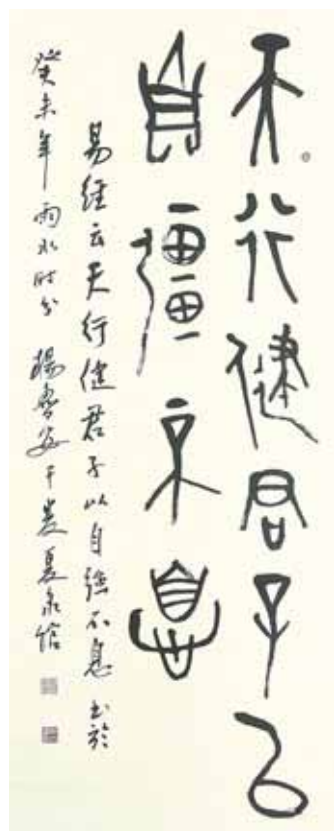 天行健君子以
自彊不息
易經云天行健君子以自強不息 书於
癸未年雨水时分 楊魯安于